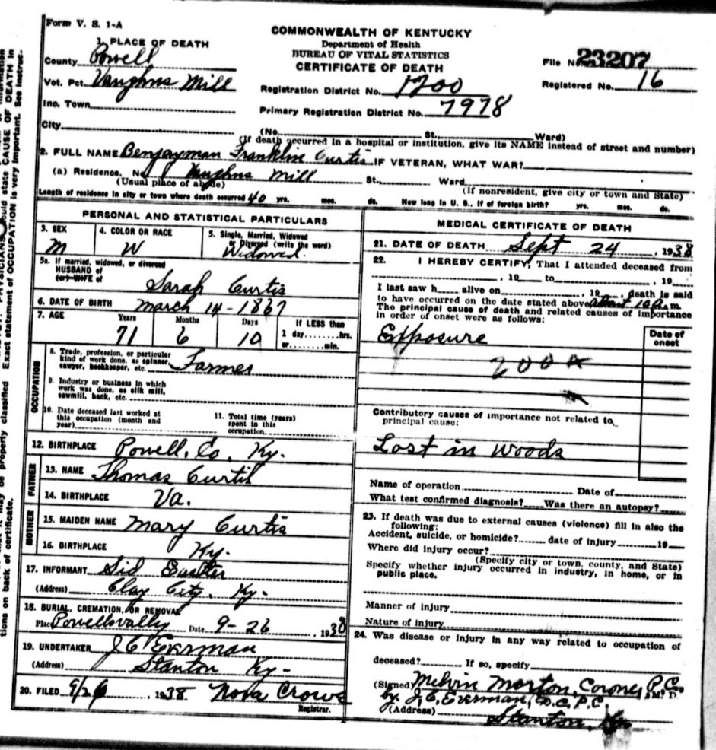 Form V. S. 1-A
COMMONWEALTH OF KENTUCKY
Department of Health
BUREAU OF VITAL STATISTICS
CERTIFICATE OF DEATH
1. PLACE OF DEATH
County Powell
Vot. Pct. Vaughns Mill
Inc. Town
City
Registration District No. 1200
Primary Registration District No. 7978
File No. 23207
Registered No. 16
(No. St. Ward)
(If death occurred in a hospital or institution, give its NAME instead of street and number)
2. FULL NAME Benjayman Franklin Curtis IF VETERAN, WHAT WAR?
(a) Residence. No. Vaughns Mill St. Ward
(Usual place of abode) (If nonresident, give city or town and State)
Length of residence in city or town where death occurred 40 yrs. mos. ds. How long in U. S., if of foreign birth? yrs. mos. ds.
PERSONAL AND STATISTICAL PARTICULARS
3. SEX M
4. COLOR OR RACE W
5. Single, Married, Widowed or Divorced (write the word) Widowed
5a. If married, widowed, or divorced
HUSBAND of
(or) WIFE of Sarah Curtis
6. DATE OF BIRTH March 14-1867
7. AGE Years Months Days If LESS than
71 6 10 1 day hrs.
or min.
OCCUPATION
8. Trade, profession, or particular
kind of work done, as spinner,
sawyer, bookkeeper, etc. Farmer
9. Industry or business in which
work was done, as silk mill,
sawmill, bank, etc.
10. Date deceased last worked at
this occupation (month and
year)
11. Total time (years)
spent in this
occupation
12. BIRTHPLACE Powell, Co. Ky.
FATHER
13. NAME Thomas Curtis
14. BIRTHPLACE Va.
MOTHER
15. MAIDEN NAME Mary Curtis
16. BIRTHPLACE Ky.
17. INFORMANT Sid
(Address) Clay City, Ky-
18. BURIAL, CREMATION, OR REMOVAL
Place Powellsvally Date 9-26 1938
19. UNDERTAKER J C Everman
(Address) Stanton Ky-
20. FILED 9/26 1938 Nova Crowe
Registrar.
MEDICAL CERTIFICATE OF DEATH
21. DATE OF DEATH Sept 24, 1938
22. I HEREBY CERTIFY, That I attended deceased from
, 19 to , 19
I last saw h alive on , 19 death is said
to have occurred on the date stated above about 10 a.m.
The principal cause of death and related causes of importance
in order of onset were as follows:
Date of
onset
Exposure
200 A
Contributory causes of importance not related to
principal cause:
Lost in Woods
Name of operation Date of
What test confirmed diagnosis? Was there an autopsy?
23. If death was due to external causes (violence) fill in also the
following:
Accident, suicide, or homicide? date of injury 19
Where did injury occur?
(Specify city or town, county, and State)
Specify whether injury occurred in industry, in home, or in
public place.
Manner of injury
Nature of injury
24. Was disease or injury in any way related to occupation of
deceased? If so, specify
(Signed) Melvin Morton, Coroner, P.C. M. D.
by J. C. Everman, D.C., P.C.
(Address) Stanton, Ky